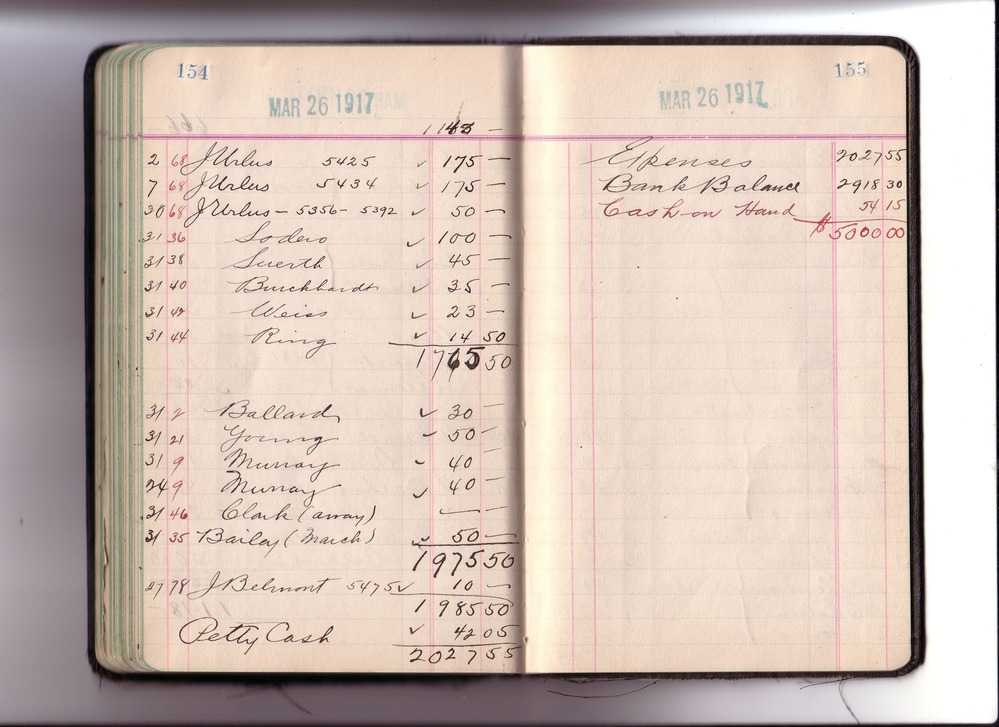 154
MAR 26 1917
1148 —
2 68 J Urlus 5425 ✓ 175 —
7 68 J Urlus 5434 ✓ 175 —
30 68 J Urlus – 5356 – 5392 ✓ 50 —
31 36 Sodero ✓ 100 —
31 38 Suerth ✓ 45 —
31 40 Burckhardt ✓ 35 —
31 42 Weiss ✓ 23 —
31 44 Ring ✓ 14 50
1765 50
31 2 Ballard ✓ 30 —
31 21 Young ✓ 50 —
31 9 Murray ✓ 40 —
24 9 Murray ✓ 40 —
31 46 Clark (away) ✓ — —
31 35 Bailey (March) ✓ 50 —
1975 50
27 78 J Belmont 5475 ✓ 10 —
1985 50
Petty Cash ✓ 42 05
2027 55
155
MAR 26 1917
Expenses 2027 55
Bank Balance 2918 30
Cash on Hand 54 15
$5000 00